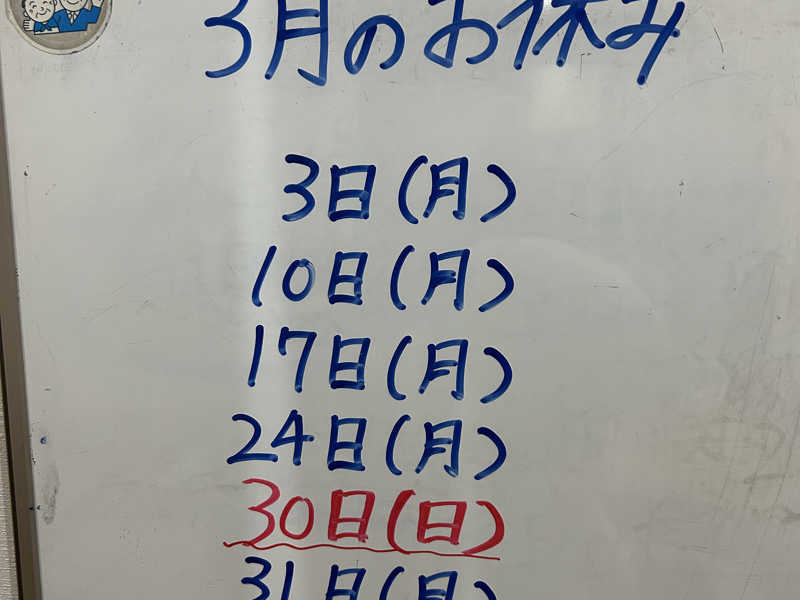 3月のお休み
3日(月)
10日(月)
17日(月)
24日(月)
30日(日)
31日(月)